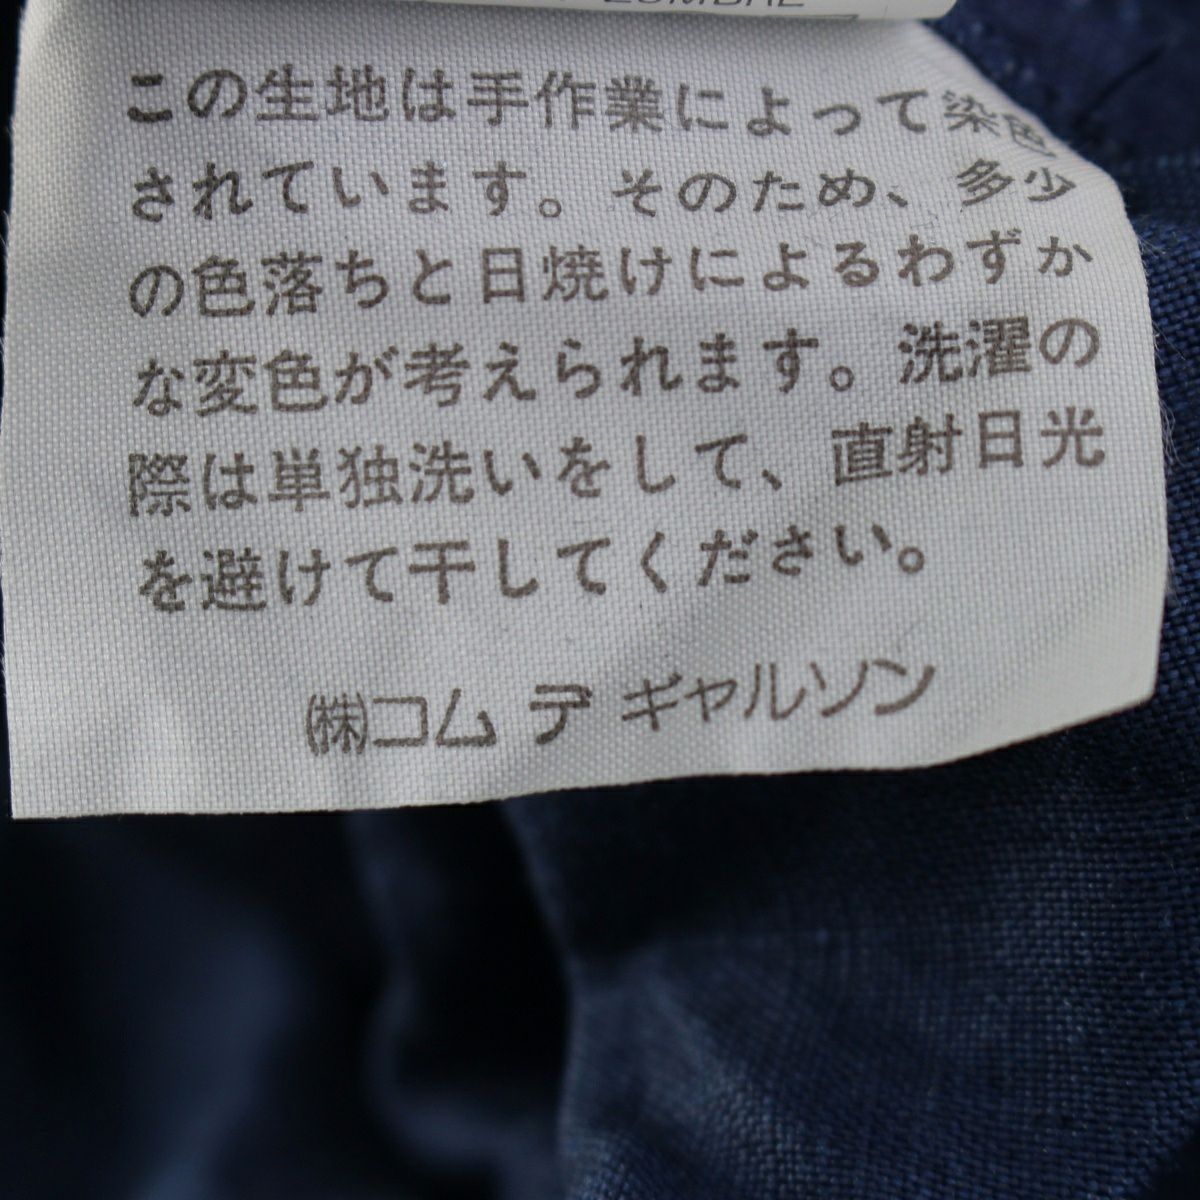 この生地は手作業によって染色
されています。そのため、多少
の色落ちと日焼けによるわずか
な変色が考えられます。洗濯の
際は単独洗いをして、直射日光
を避けて干してください。
㈱コム デ ギャルソン